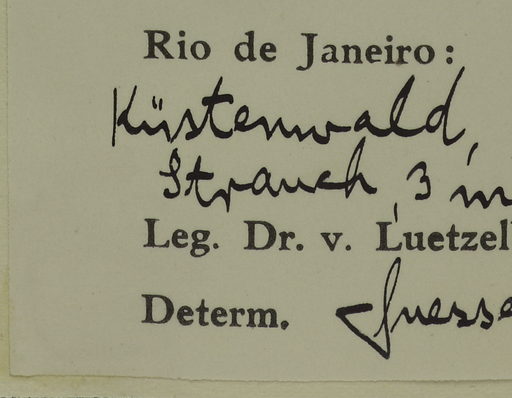 Rio de Janeiro:
Küstenwald,
Strauch, 3 m
Leg. Dr. v. Luetzel
Determ. Suesse